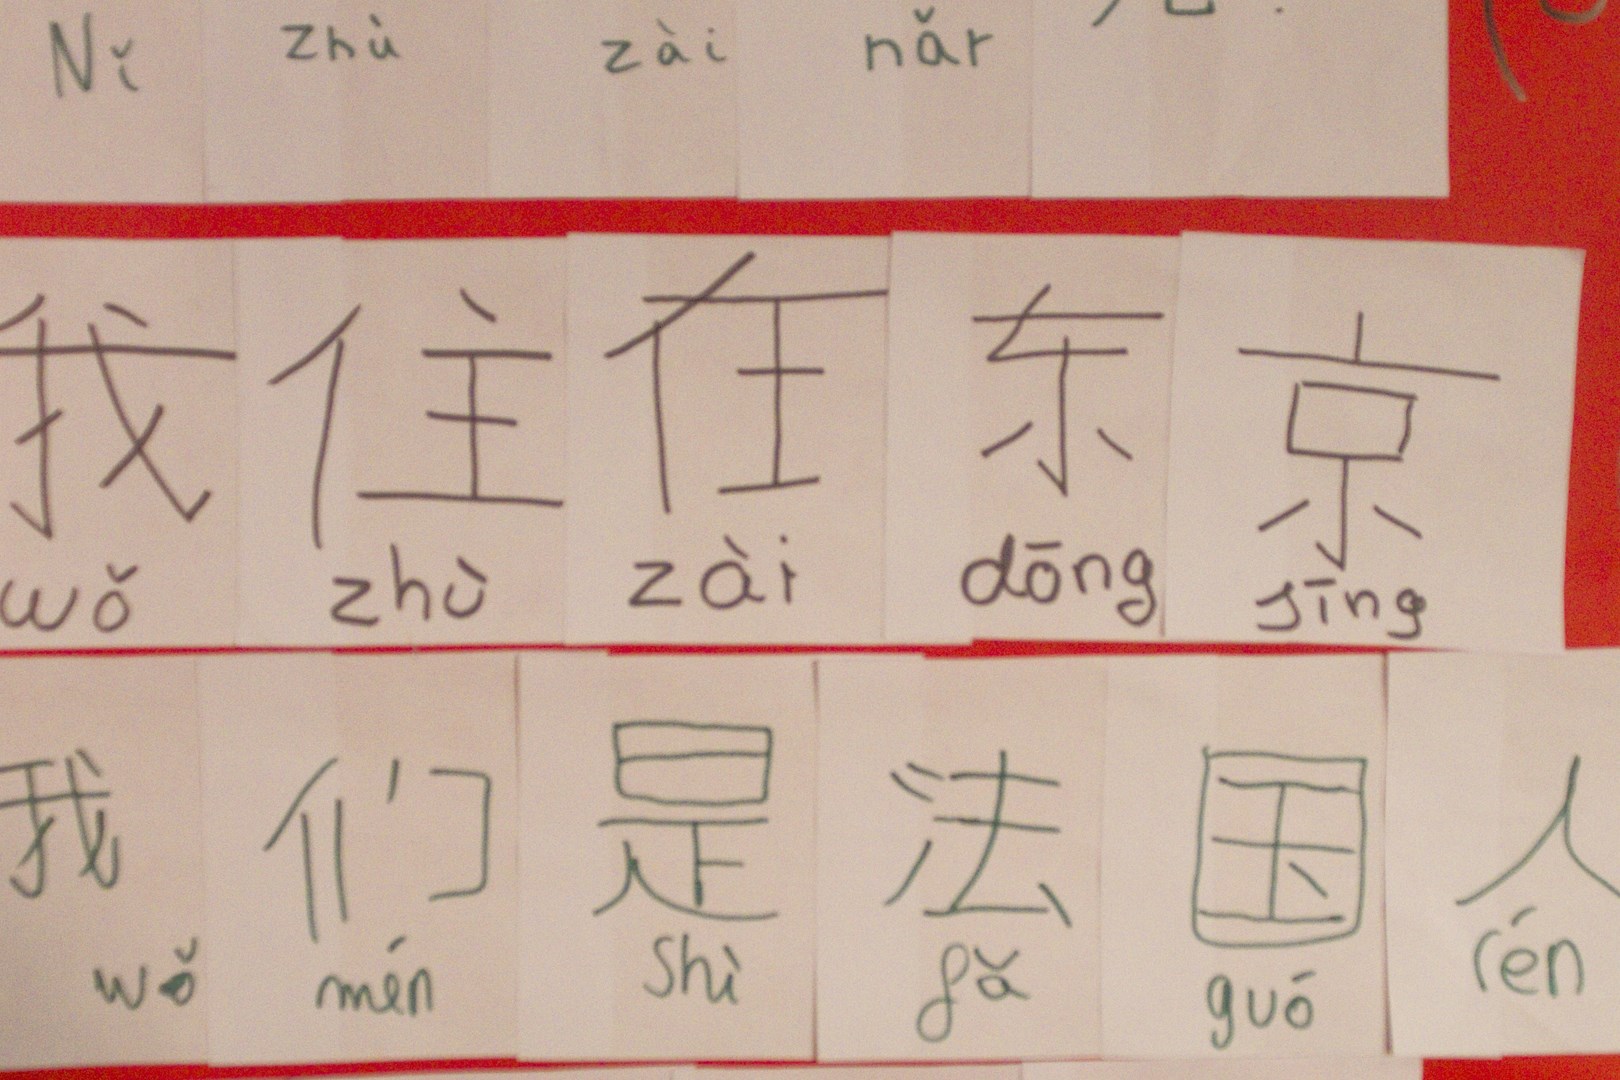 Nǐ zhù zài nǎr
我 住 在 东 京
wǒ zhù zài dōng jīng
我 们 是 法 国 人
wǒ mén shì fǎ guó rén